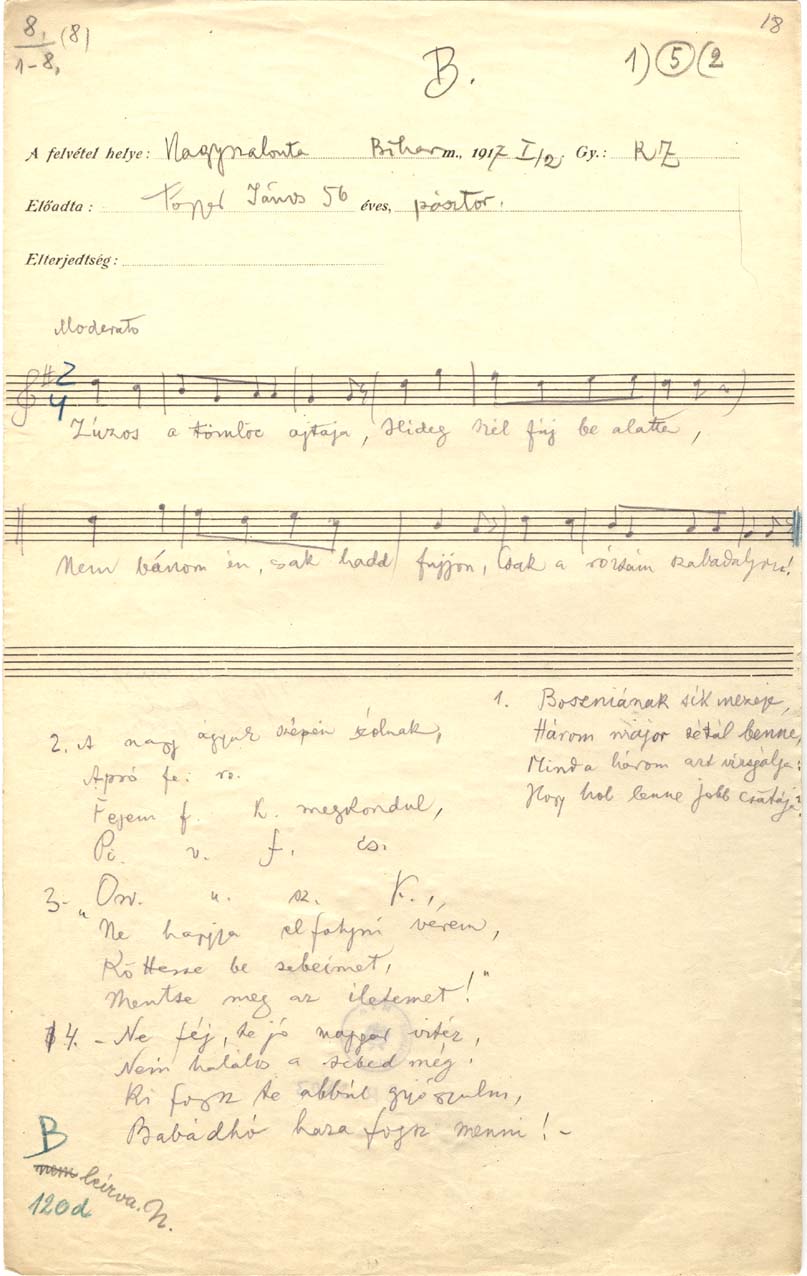 8, (8)
1-8,
18
B.
1) 5 (2
A felvétel helye: Nagyszalonta Bihar m., 1917 I/2. Gy.: KZ
Előadta: János 56 éves, pásztor.
Elterjedtség:
Moderato
2
4
Zúzos a tömlöc ajtaja, Hideg szél fúj be alatta,
Nem bánom én, csak hadd fújjon, Csak a rózsám szabaduljon!
1. Boszniának sík mezeje,
Három major sétál benne,
Mind a három azt vizsgálja:
Hogy hol lenne jobb csatája?
2. A nagy ágyuk szépen szólnak,
Apró fe. ro.
Fejem f. k. megkondul,
Pi. v. f. cs.
3- Orv. u. sz. K.,
"Ne hagyja elfolyni vérem,
Köttesse be sebeimet,
Mentse meg az életemet!"
4. - Ne félj, te jó magyar vitéz,
Nem halálos a sebed még.
Ki fogsz te abbúl gyógyulni,
Babádhó haza fogsz menni! -
B
nem leírva.
120d